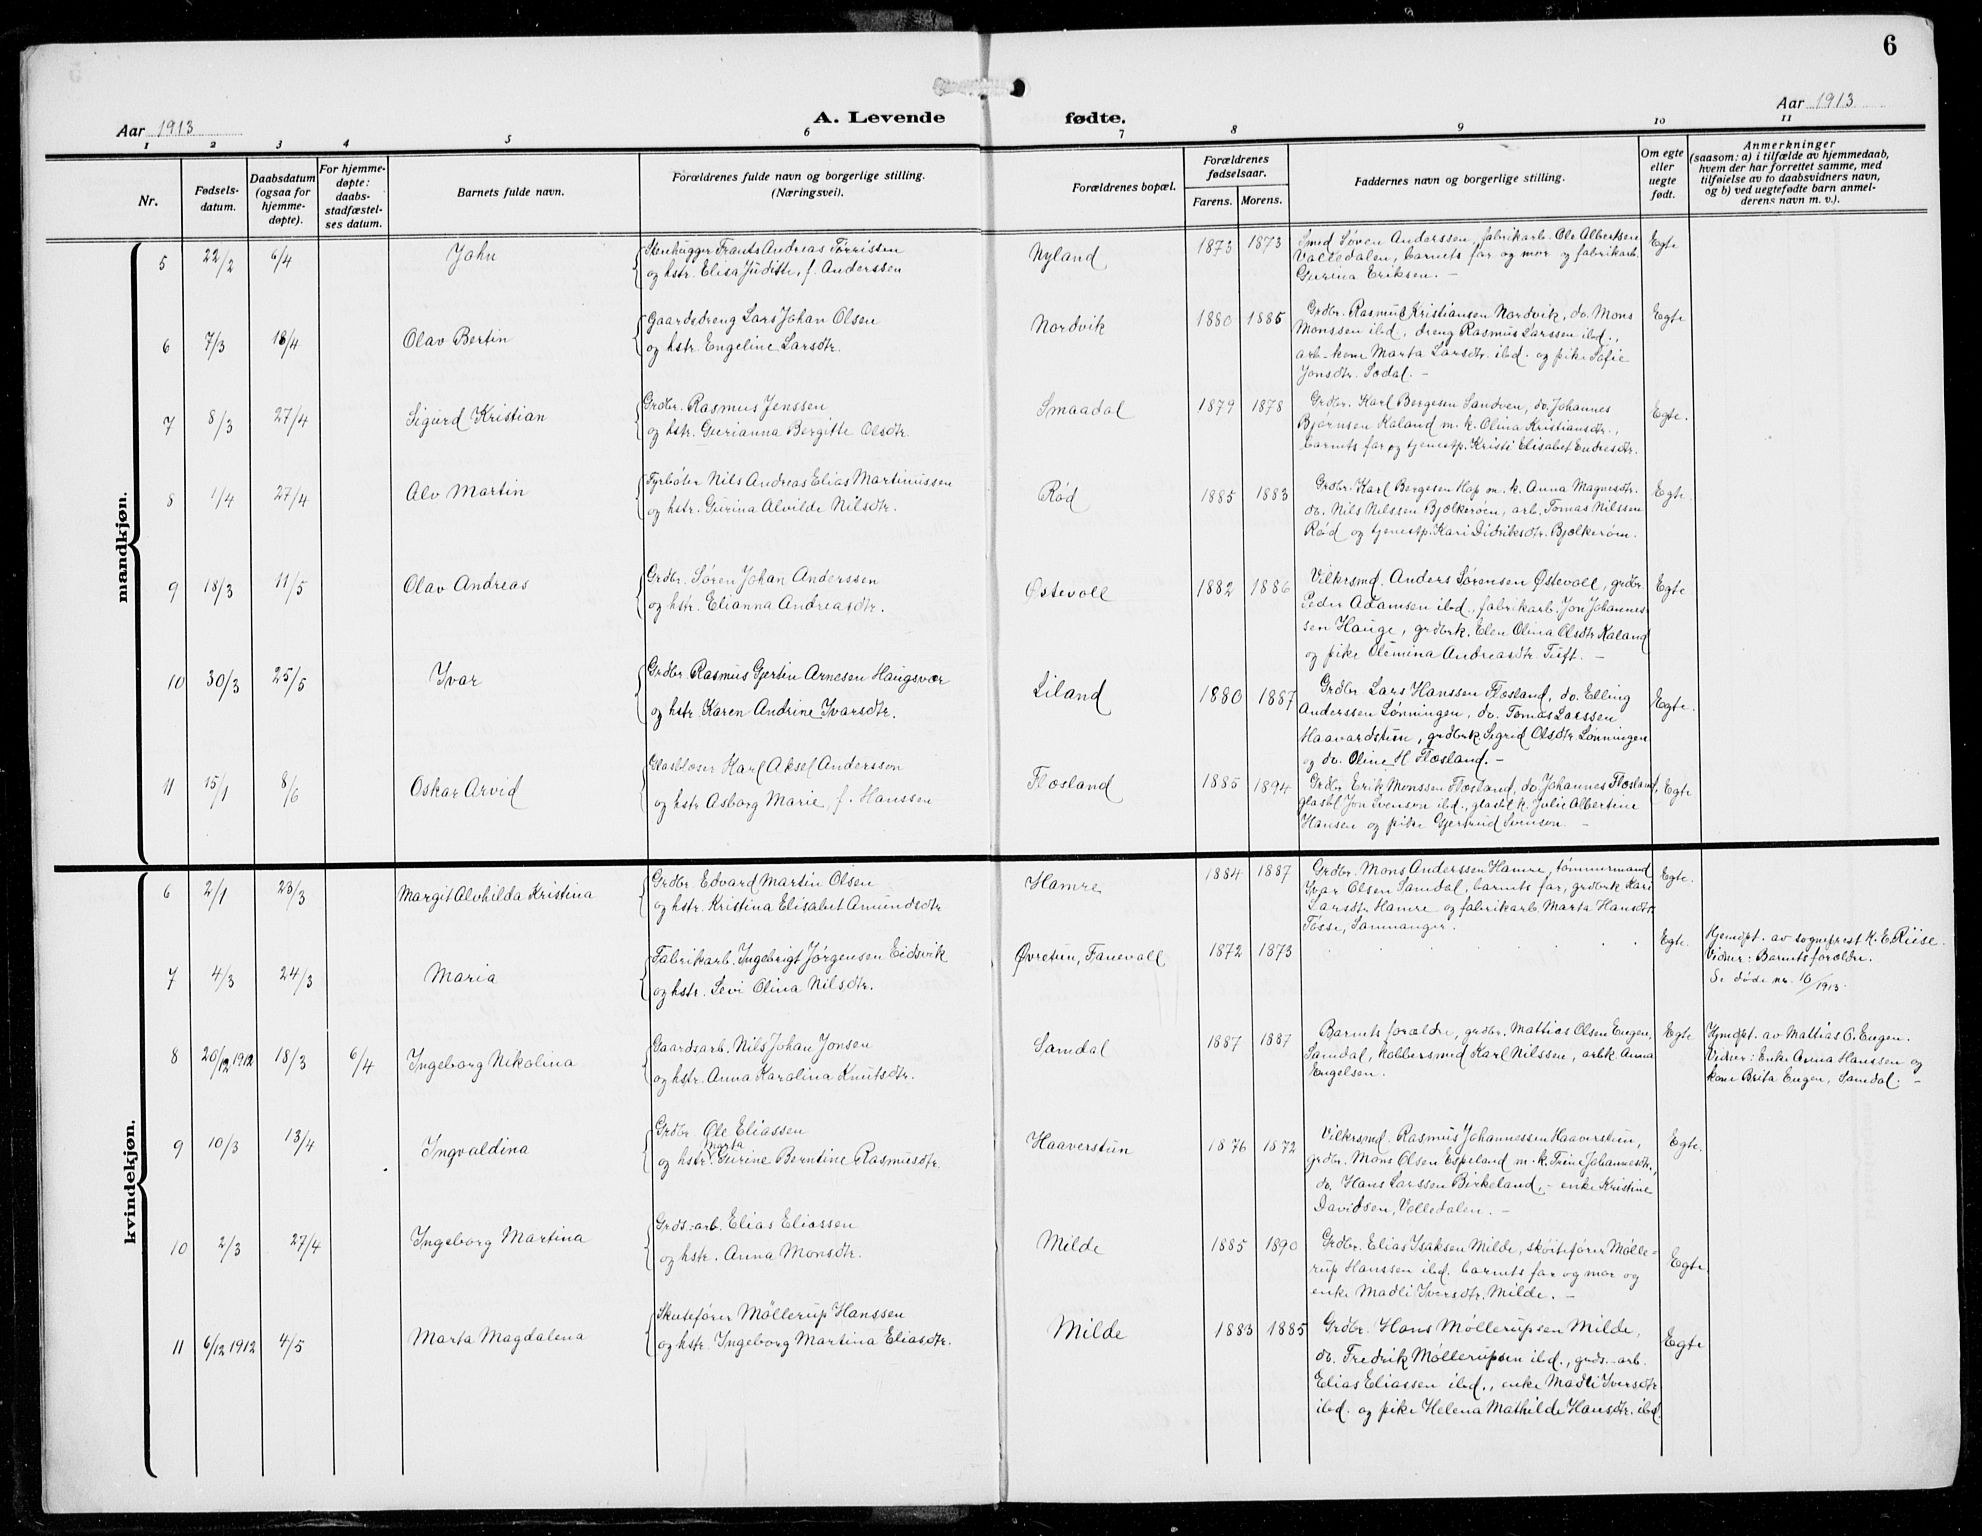 6
Aar 1913
A. Levende fødte.
Aar 1913
1 2 3 4 5 6 7 8 9 10 11
Nr.
Fødsels-
datum.
Daabsdatum
(ogsaa for
hjemme-
døpte).
For hjemme-
døpte:
daabs-
stadfæstel-
ses datum.
Barnets fulde navn.
Forældrenes fulde navn og borgerlige stilling.
(Næringsvei).
Forældrenes bopæl.
Forældrenes
fødselsaar.
Farens. Morens.
Faddernes navn og borgerlige stilling.
Om egte
eller
uegte
født.
Anmerkninger
(saasom: a) i tilfælde av hjemmedaab,
hvem der har forrettet samme, med
tilføielse av to daabsvidners navn,
og b) ved uegtefødte barn anmel-
derens navn m. v.).
mandkjøn.
5 22/2 6/4 John
Stenhugger Frants Andreas Tørrissen
og hstr. Elisa Juditte, f. Anderssen
Nyland 1873 1873
Smed Søren Anderssen, fabrikarb. Ole Albertsen
Valledalen, barnets far og mor og fabrikarb.
Gurina Eriksen. –
Egte
6 7/3 18/4 Olav Bertin
Gaardsdreng Lars Johan Olsen
og hstr. Engeline Larsdtr.
Nordvik 1880 1885
Grdbr. Rasmus Kristiansen Nordvik, do. Mons
Monssen ibd, dreng Rasmus Larssen ibd.,
arb-kone Marta Larsdtr. ibd. og pike Sofie
Jonsdtr. Sødal. –
Egte
7 8/3 27/4 Sigurd Kristian
Grdbr. Rasmus Jenssen
og hstr. Gurianna Bergitte Olsdtr.
Smaadal 1879 1878
Grdbr. Karl Bergesen Sandven, do. Johannes
Bjørnsen Kaland m. k. Olina Kristiansdtr.,
barnets far og tjenestp. Kristi Elisabet Endresdtr.
Egte.
8 1/4 27/4 Alv Martin
Fyrbøter Nils Andreas Elias Martinussen
og hstr. Gurina Alvilde Nilsdtr.
Rød 1885 1883
Grdbr. Karl Bergesen Hop m. k. Anna Magnesdtr.
do. Nils Nilssen Bjelkerøen, arb. Tomas Nilssen
Rød og tjenestp. Kari Didriksdtr. Bjelkerøen.
Egte.
9 18/3 11/5 Olav Andreas
Grdbr. Søren Johan Anderssen
og hstr. Elianna Andreasdtr.
Østevoll 1882 1886
Vilkrsmd. Anders Sørensen Østevoll, grdbr
Peder Adamsen ibd., fabrikarb. Jon Johannes-
sen Hauge, grdbrk. Elen Olina Olsdtr Kaland
og pike Olemina Andreasdtr. Tuft. –
Egte.
10 30/3 25/5 Ivar
Grdbr. Rasmus Gjertin Arnesen Haugsvær
og hstr Karen Andrine Ivarsdtr.
Liland 1880 1887
Grdbr. Lars Hanssen Flæsland, do. Elling
Anderssen Lønningen, do. Tomas Larssen
Haavardstun, grdbrk. Sigrid Olsdtr Lønningen
og do. Oline H Flæsland. –
Egte.
11 15/1 8/6 Oskar Arvid
Glasblæser Karl Aksel Andersson
og hstr Asborg Marie, f. Hanssen
Flæsland 1885 1894
Grdbr Erik Monssen Flæsland, do. Johannes Flæsland,
glasbl Jon Svenson ibd., glasbl k. Julie Albertine
Hansen og pike Gjertrud Svenson. –
Egte
kvindekjøn.
6 2/1 23/3 Margit Alvhilda Kristina
Grdbr Edvard Martin Olsen
og hstr. Kristina Elisabet Amundsdtr
Hamre 1884 1887
Grdbr. Mons Anderssen Hamre, tømmermand
Ivar Olsen Samdal, barnets far, grdbrk Kari
Larsdtr Hamre og fabrikarb. Marta Hansdtr.
Tøsse, Samnanger.
Egte.
7 4/3 24/3 Maria
Fabrikarb. Ingebrigt Jørgensen Eidsvik
og hstr. Sevi Olina Nilsdtr.
Øvretun, Fanevoll 1872 1873
Egte.
Hjemdpt. av sogneprest K. E. Riise.
Vidner: Barnets forældre.
Se døde nr. 10/1913.
8 20/12 1912 18/3 6/4 Ingeborg Nikolina
Gaardsarb. Nils Johan Jonsen
og hstr. Anna Karolina Knutsdtr.
Samdal 1887 1887
Barnets forældre, grdbr. Mattias Olsen Eugen,
Samdal, kobbersmed Karl Nilssen, arbk Anna
Engelsen.
Egte
Hjemdpt. av Mattias O. Eugen.
Vidner: Enke Anna Hanssen og
kone Brita Eugen, Samdal. –
9 10/3 13/4 Ingvaldina
Grdbr Ole Eliassen
og hstr. Marta Gurine Berntine Rasmusdtr.
Haaverstun 1876 1872
Vilkrsmd. Rasmus Johannessen Haaverstun,
grdbr. Mons Olsen Espeland m. k. Trine Johannesdtr.,
do. Hans Larssen Birkeland, – enke Kristine
Davidsen, Valledalen. –
Egte.
10 2/3 27/4 Ingeborg Martina
Grds.-arb. Elias Eliassen
og hstr. Anna Monsdtr.
Milde 1885 1890
Grdbr. Elias Isaksen Milde, skøitefører Mølle-
rup Hanssen ibd. barnets far og mor og
enke Madli Iversdtr. Milde. –
Egte
11 6/12 1912 4/5 Marta Magdalena
Skutefører Møllerup Hanssen
og hstr. Ingeborg Martina Eliasdtr.
Milde 1883 1885
Grdbr. Hans Møllerupsen Milde,
do. Fredrik Møllerupsen ibd., grds.-arb.
Elias Eliassen ibd., enke Madli Iversdtr
ibd. og pike Helena Mathilde Hansdtr. ibd.
Egte